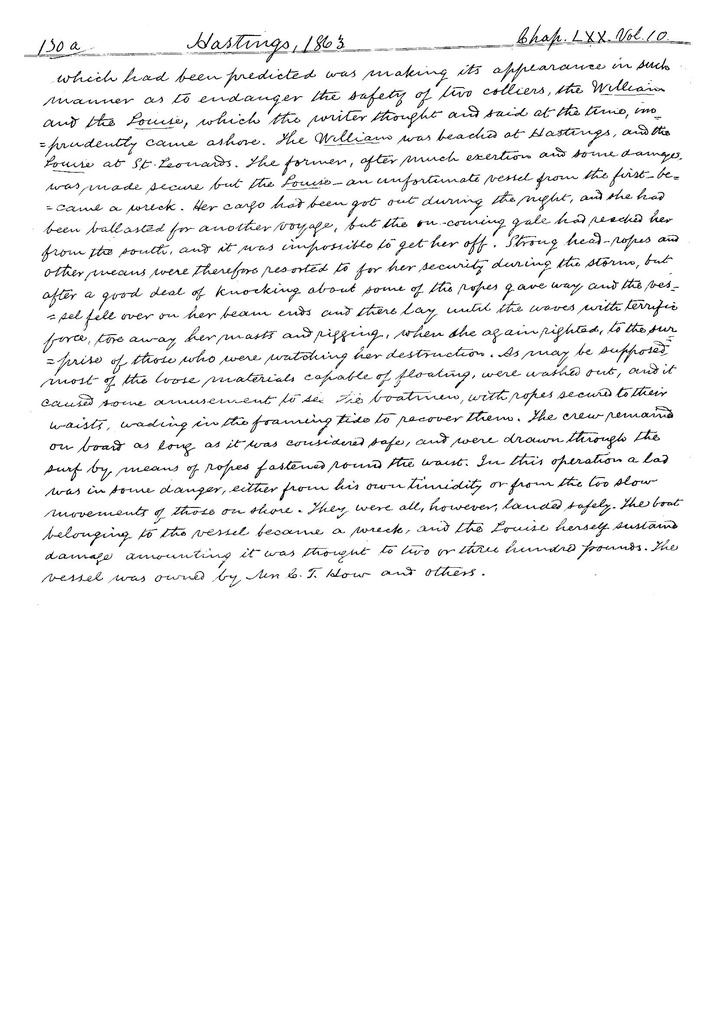 130a Hastings, 1863 Chap. LXX. Vol. 10
which had been predicted was making its appearance in such
manner as to endanger the safety of two colliers, the William
and the Louise, which the writer thought and said at the time, im=
=prudently came ashore. The William was beached at Hastings, and the
Louise at St. Leonards. The former, after much exertion and some damage,
was made secure but the Louise - an unfortunate vessel from the first - be=
=came a wreck. Her cargo had been got out during the night, and she had
been ballasted for another voyage, but the on-coming gale had reached her
from the south, and it was impossible to get her off. Strong head-ropes and
other means were therefore resorted to for her security during the storm, but
after a good deal of knocking about some of the ropes gave way and the ves=
=sel fell over on her beam ends and there lay until the waves with terrific
force, tore away her masts and rigging, when she again righted, to the sur=
=prise of those who were watching her destruction. As may be supposed
most of the loose materials capable of floating, were washed out, and it
caused some amusement to see the boatmen, with ropes secured to their
waists, wading in the foaming tide to recover them. The crew remained
on board as long as it was considered safe, and were drawn through the
surf by means of ropes fastened round the waist. In this operation a lad
was in some danger, either from his own timidity or from the too slow
movements of those on shore. They were all, however, landed safely. The boat
belonging to the vessel became a wreck, and the Louise herself sustained
damage amounting it was thought to two or three hundred pounds. The
vessel was owned by C. T. How and others.